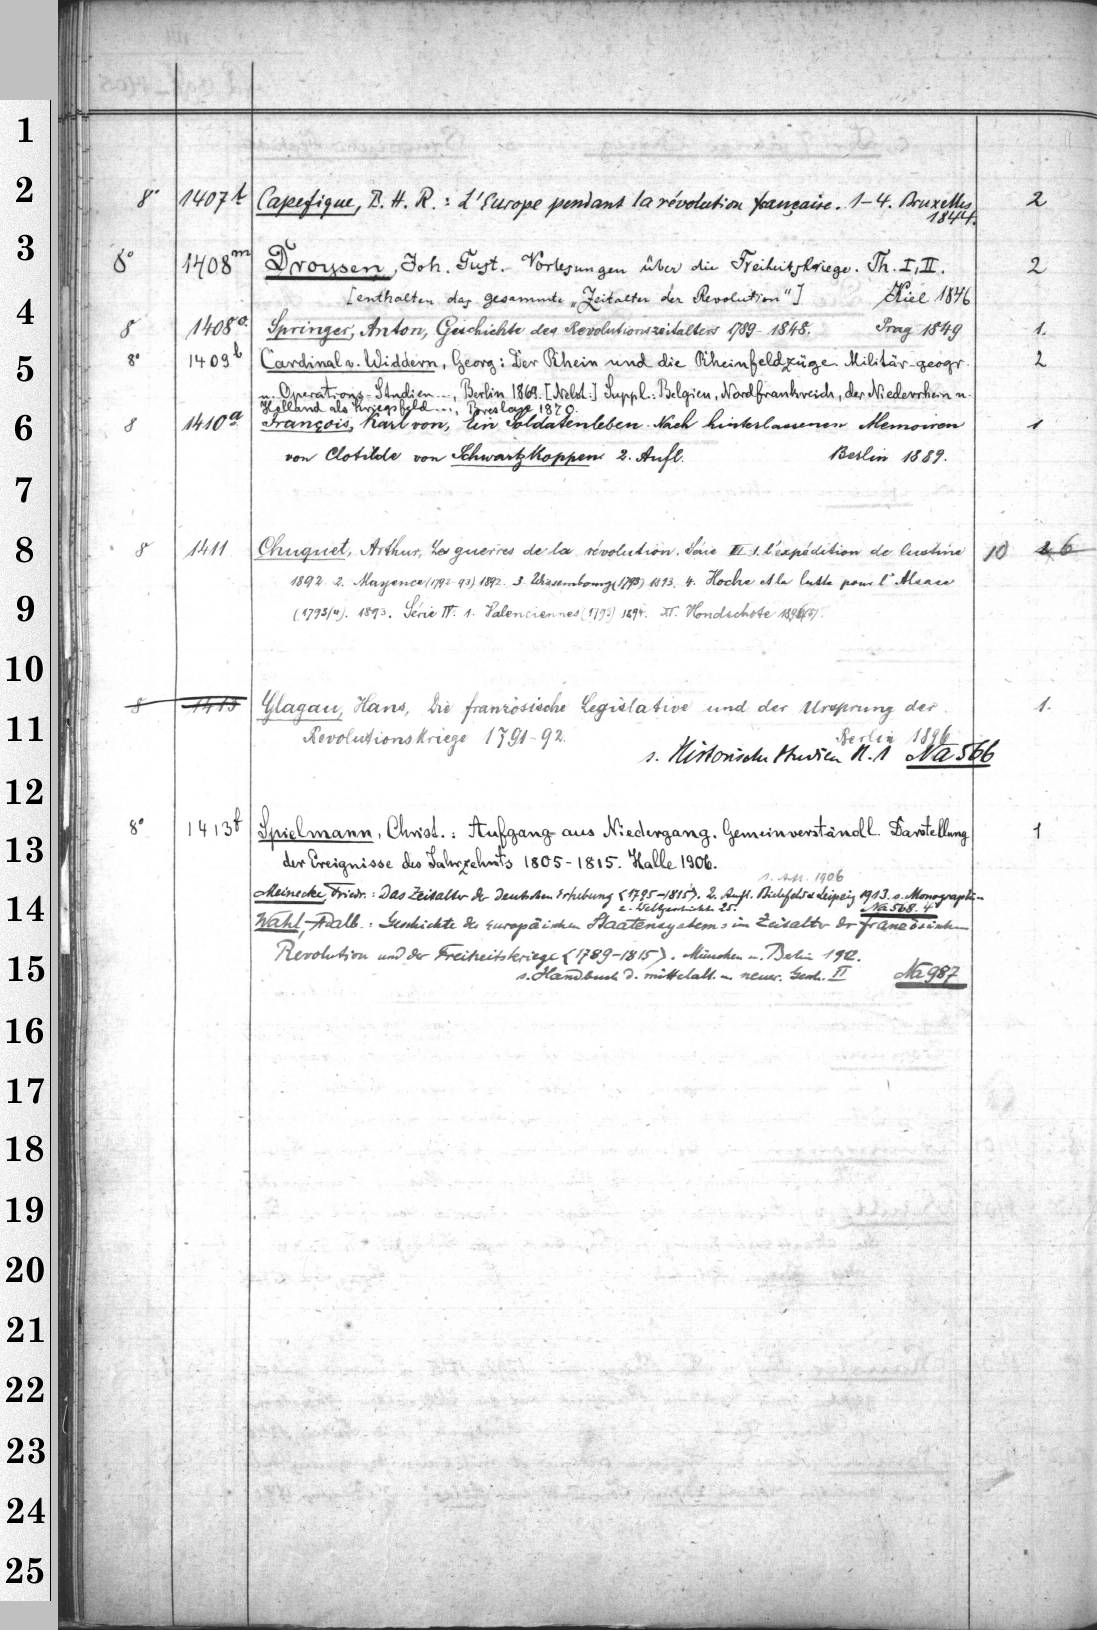 1
2
8° 1407t Capefigue, B. H. R.: L'Europe pendant la révolution française. 1-4. Bruxelles 2
1844.
3
8° 1408m Droysen, Joh. Gust. Vorlesungen über die Freiheitskriege. Th. I, II. 2
[enthalten das gesammte „Zeitalter der Revolution"] Kiel 1846
4
8 1408o. Springer, Anton, Geschichte des Revolutionszeitalters 1789-1848. Prag 1849 1.
5
8° 1409b Cardinal v. Widdern, Georg: Der Rhein und die Rheinfeldzüge. Militär-geogr. 2
u. Operations-Studien..., Berlin 1869. [Nebst:] Suppl.: Belgien, Nordfrankreich, der Niederrhein u.
Holland als Kriegsfeld..., Breslau 1870.
6
8 1410a François, Karl von, Ein Soldatenleben. Nach hinterlassenen Memoiren 1
von Clotilde von Schwartzkoppen 2. Aufl. Berlin 1889.
7
8
8 1411 Chuquet, Arthur, Les guerres de la révolution. Série III 1. l'expédition de Custine 10 2 6
1892. 2. Mayence (1792-93) 1892. 3. Wissembourg (1793) 1893. 4. Hoche et la lutte pour l'Alsace
9
(1793/4). 1893. Série IV. 1. Valenciennes (1793) 1894. XI. Hondschote 1896
10
8 1413 Glagau, Hans, Die französische Legislative und der Ursprung der 1.
11
Revolutionskriege 1791-92. Berlin 1896
s. Historische Studien H. 1 Na 566
12
8° 1413t Spielmann, Christ.: Aufgang aus Niedergang. Gemeinverständl. Darstellung 1
13
der Ereignisse des Jahrzehnts 1805-1815. Halle 1906.
1. Aufl. 1906
14
Meinecke, Friedr.: Das Zeitalter der deutschen Erhebung (1795-1815). 2. Aufl. Bielefeld & Leipzig 1913. s. Monographien
z. Weltgeschichte 25. Na 568. 4°
Wahl, Adalb.: Geschichte des europäischen Staatensystems im Zeitalter der französischen
15
Revolution und der Freiheitskriege (1789-1815). München u. Berlin 1912.
s. Handbuch d. mittelalt. u. neuer. Gesch. II Na 987
16
17
18
19
20
21
22
23
24
25